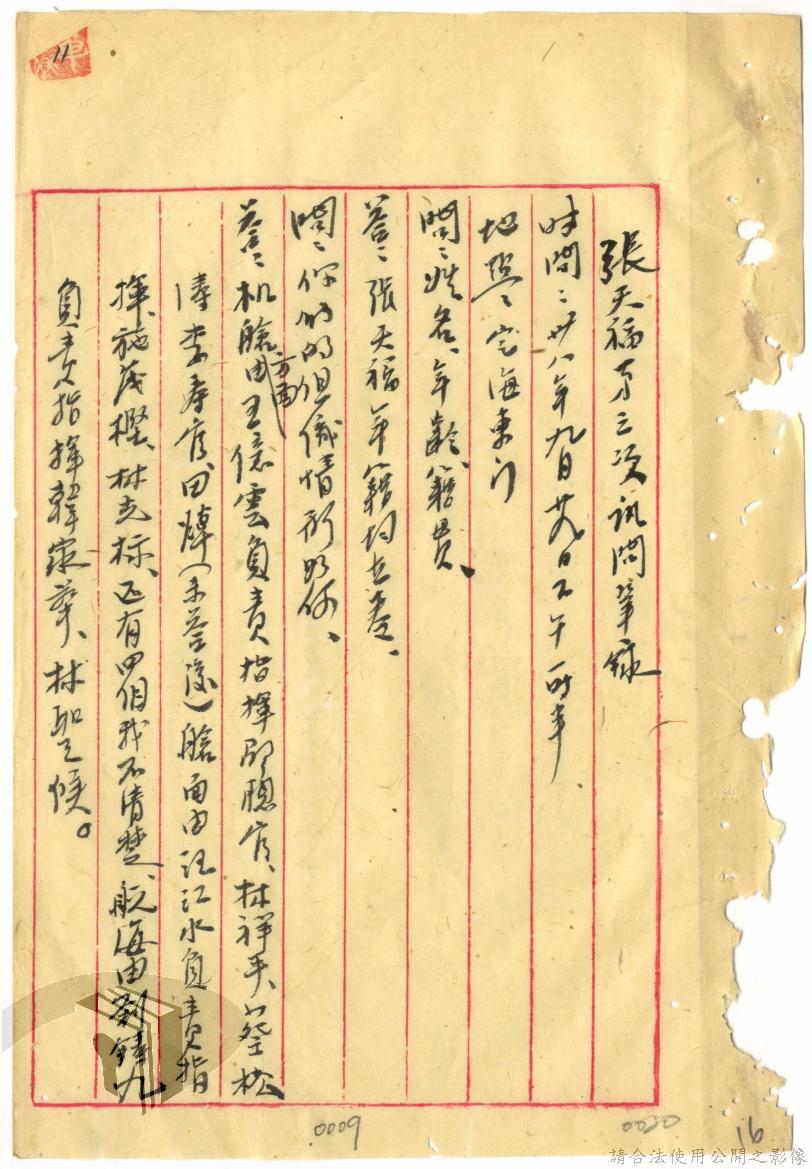 11
張天福第三次訊問筆錄
時間：卅八年九月廿九日下午一時半
地點：定海東門
問：姓名、年齡、籍貫、
答：張天福年籍均在卷、
問：你們的組織情形如何、
答：机艙方面由王億雲負責指揮邱聰官、林祥平、蔡松
濤、李春官、田焯（未答復）艙面由汪江水負責指
揮、施茂樫、林克标、还有四個我不清楚、航海由劉鋒九
負責指揮韓家華、林聖候。
0009
0020
16
請合法使用公開之影像